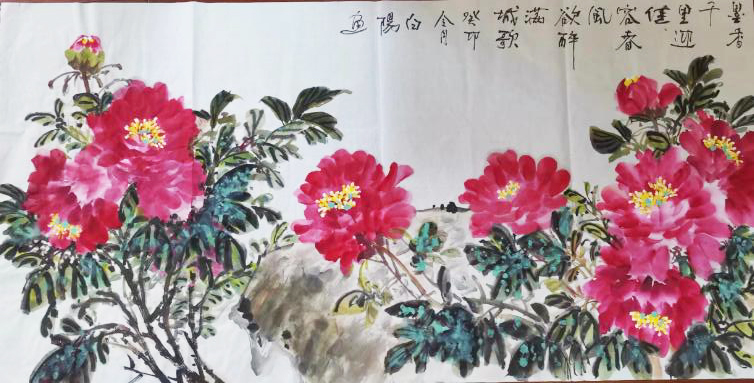 墨香
千
里迎
佳
客春
風
欲醉
滿
城歌
癸卯
月
白
陽